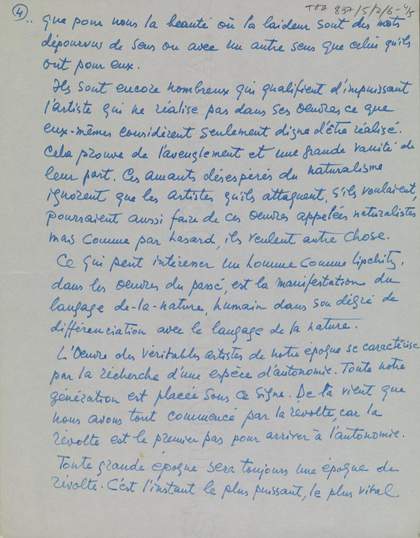 4..
TGA 897/5/2/6-4/5
que pour nous la beauté où la laideur sont des mots
dépourvus de sens ou avec un autre sens que celui qu'ils
ont pour eux.
Ils sont encore nombreux qui qualifient d'impuissant
l'artiste qui ne réalise pas dans ses oeuvres ce que
eux-mêmes considèrent seulement digne d'être réalisé.
Cela prouve de l'aveuglement et une grande vanité de
leur part. Ces amants désespérés du naturalisme
ignorent que les artistes qu'ils attaquent, s'ils voulaient,
pourraient aussi faire de ces oeuvres appelées naturalistes
mais comme par hasard, ils veulent autre chose.
Ce qui peut intéresser un homme comme Lipchitz,
dans les oeuvres du passé, est la manifestation du
langage de-la-nature, humain dans son dégré de
différenciation avec le langage de la nature.
L'Oeuvre des véritables artistes de notre époque se caractérise
par la récherche d'une espèce d'autonomie. Toute notre
génération est placée sous ce signe. De là vient que
nous avons tout commencé par la révolte, car la
révolte est le premier pas pour arriver à l'autonomie.
Toute grande époque sera toujours une époque de
révolte. C'est l'instant le plus puissant, le plus vital